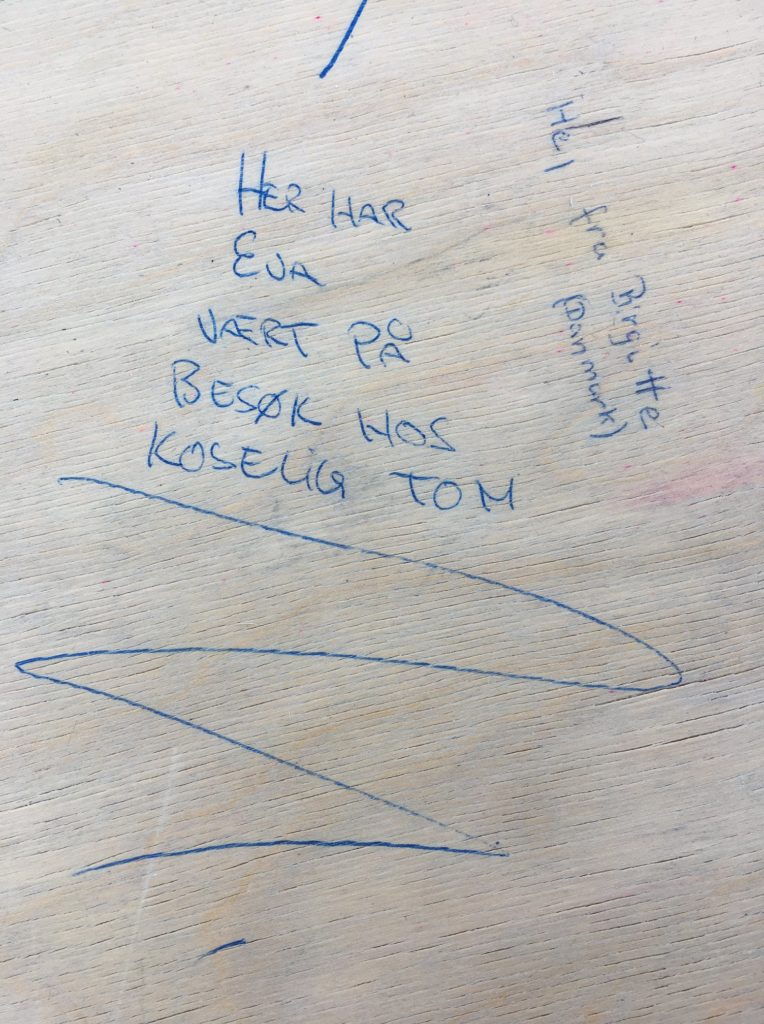 HER HAR
EVA
VÆRT PÅ
BESØK HOS
KOSELIG TOM
Hej fra Birgitte
(Danmark)